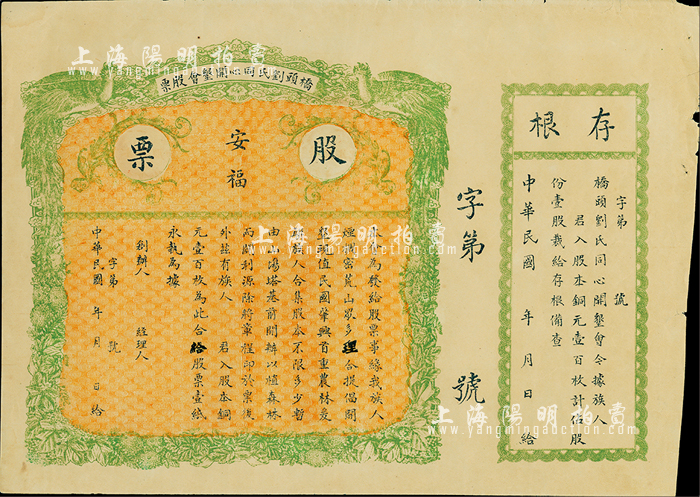 上海陽明拍賣
www.yangmingauction.com
橋頭劉氏同心開墾會股票
股票
安福
為發給股票事緣我族人
煙稠密荒山最多理合提倡開
墾 值民國肇興首重農林爰
族人合集股本不限多少暫
由山湯塔巷前開辦以植森林
而闢利源除將章程印於票後
外茲有族人 君入股本銅
元壹百枚為此合給股票壹紙
永執為據
創辦人 經理人
字第 號
中華民國 年 月 日給
字第 號
存根
字第 號
橋頭劉氏同心開墾會今據族人
君入股本銅元壹百枚計佔股
份壹股裁給存根備查
中華民國 年 月 日給
上海陽明拍賣
www.yangmingauction.com